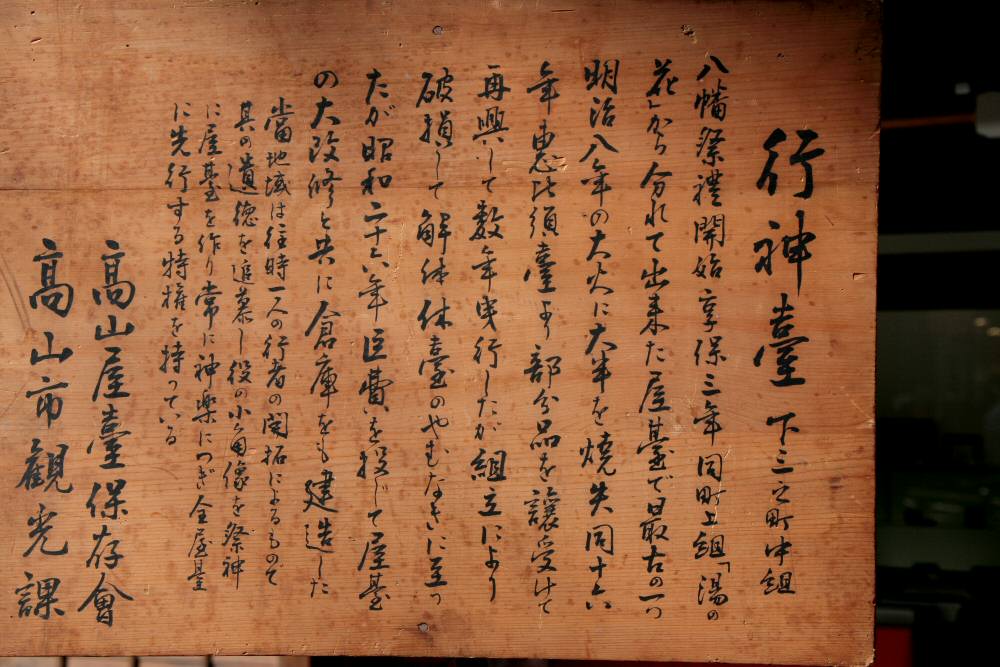 行神臺 下三之町中組
八幡祭禮開始享保三年同町上組「湯の
花」から分れて出来た屋臺で最古の一つ
明治八年の大火に大半を焼失同十六
年恵比須臺より部分品を譲受けて
再興して数年曳行したが組立により
破損して解体休臺のやむなきに至っ
たが昭和二十六年巨費を投じて屋臺
の大改修と共に倉庫をも建造した
當地域は往時一人の行者の開拓によるもので
其の遺徳を追慕し役の小角像を祭神
に屋臺を作り常に神楽につぎ全屋臺
に先行する特権を持っている
高山屋臺保存會
高山市観光課